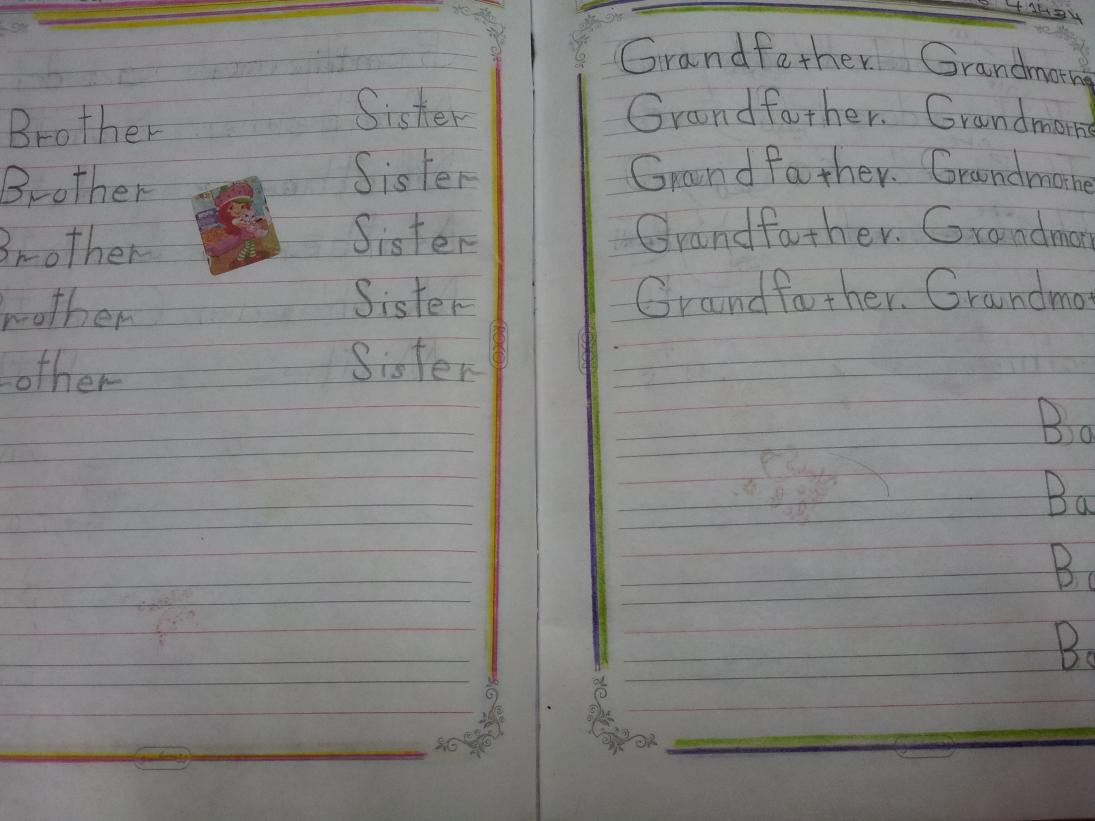 Brother Sister
Brother Sister
Brother Sister
rother Sister
other Sister
Grandfather. Grandmothe
Grandfather. Grandmothe
Grandfather. Grandmothe
Grandfather. Grandmot
Grandfather. Grandmot
Ba
Ba
Ba
Ba